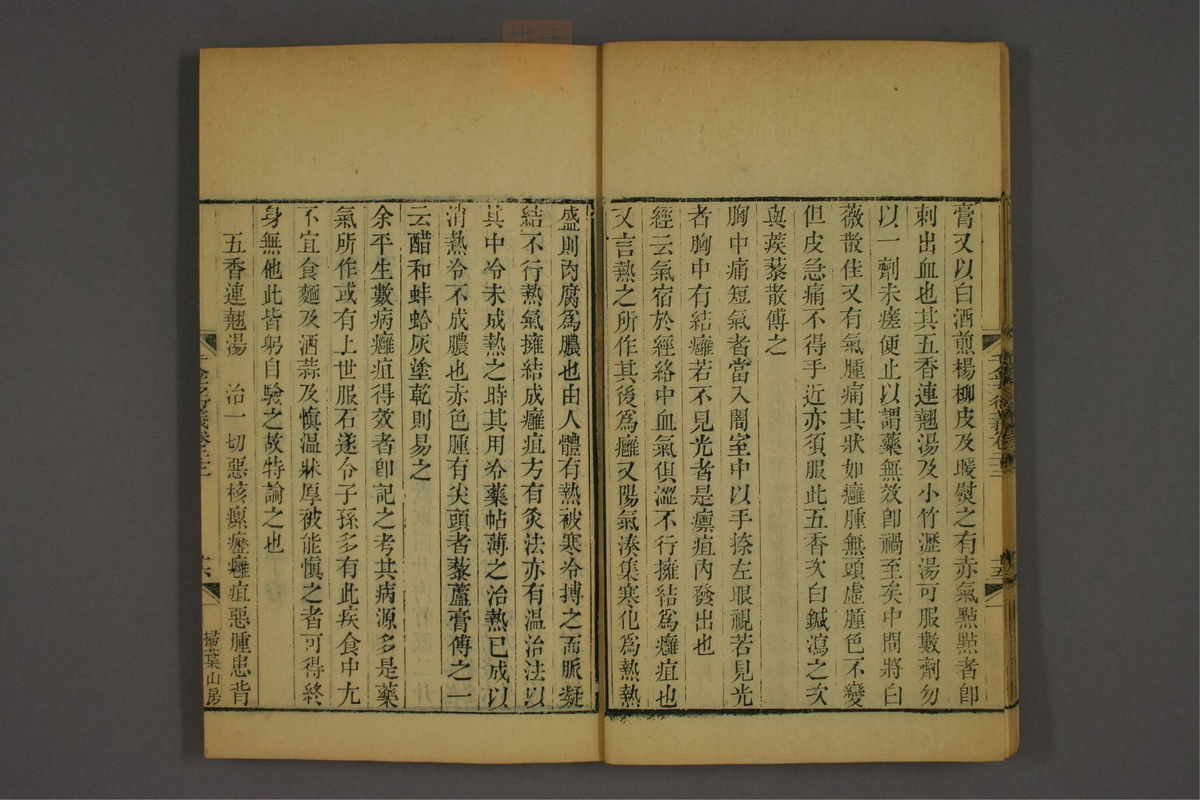 膏又以白酒煎楊柳皮及暖熨之有赤氣㸃㸃者卽
刺出血也其五香連翹湯及小竹瀝湯可服數劑勿
以一劑未瘥便止以謂藥無效卽禍至矣中間將白
薇散佳又有氣腫痛其狀如癰腫無頭虛腫色不變
但皮急痛不得手近亦須服此五香次白鍼瀉之次
與蒺藜散傅之
胸中痛短氣者當入闇室中以手捺左眼視若見光
者胸中有結癰若不見光者是瘭疽內發出也
經云氣宿於經絡中血氣俱澀不行擁結爲癰疽也
又言熱之所作其後爲癰又陽氣湊集寒化爲熱熱
盛則肉腐爲膿也由人體有熱被寒冷搏之而脈凝
結不行熱氣擁結成癰疽方有灸法亦有温治法以
其中冷未成熱之時其用冷藥帖薄之治熱已成以
消熱冷不成膿也赤色腫有尖頭者藜蘆膏傅之一
云醋和蚌蛤灰塗乾則易之
余平生數病癰疽得效者卽記之考其病源多是藥
氣所作或有上世服石遂令子孫多有此疾食中尤
不宜食麵及酒蒜及慎温牀厚被能慎之者可得終
身無他此皆躬自驗之故特論之也
五香連翹湯 治一切惡核瘰癧癰疽惡腫患背
掃葉山房